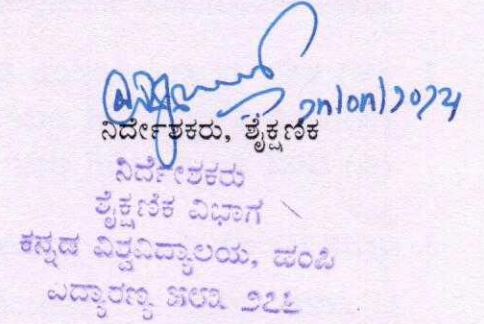 ನಿರ್ದೇಶಕರು, ಶೈಕ್ಷಣಿಕ
ನಿರ್ದೇಶಕರು
ಶೈಕ್ಷಣಿಕ ವಿಭಾಗ
ಕನ್ನಡ ವಿಶ್ವವಿದ್ಯಾಲಯ, ಹಂಪಿ
ವಿದ್ಯಾರಣ್ಯ ೫೮೩ ೨೭೬